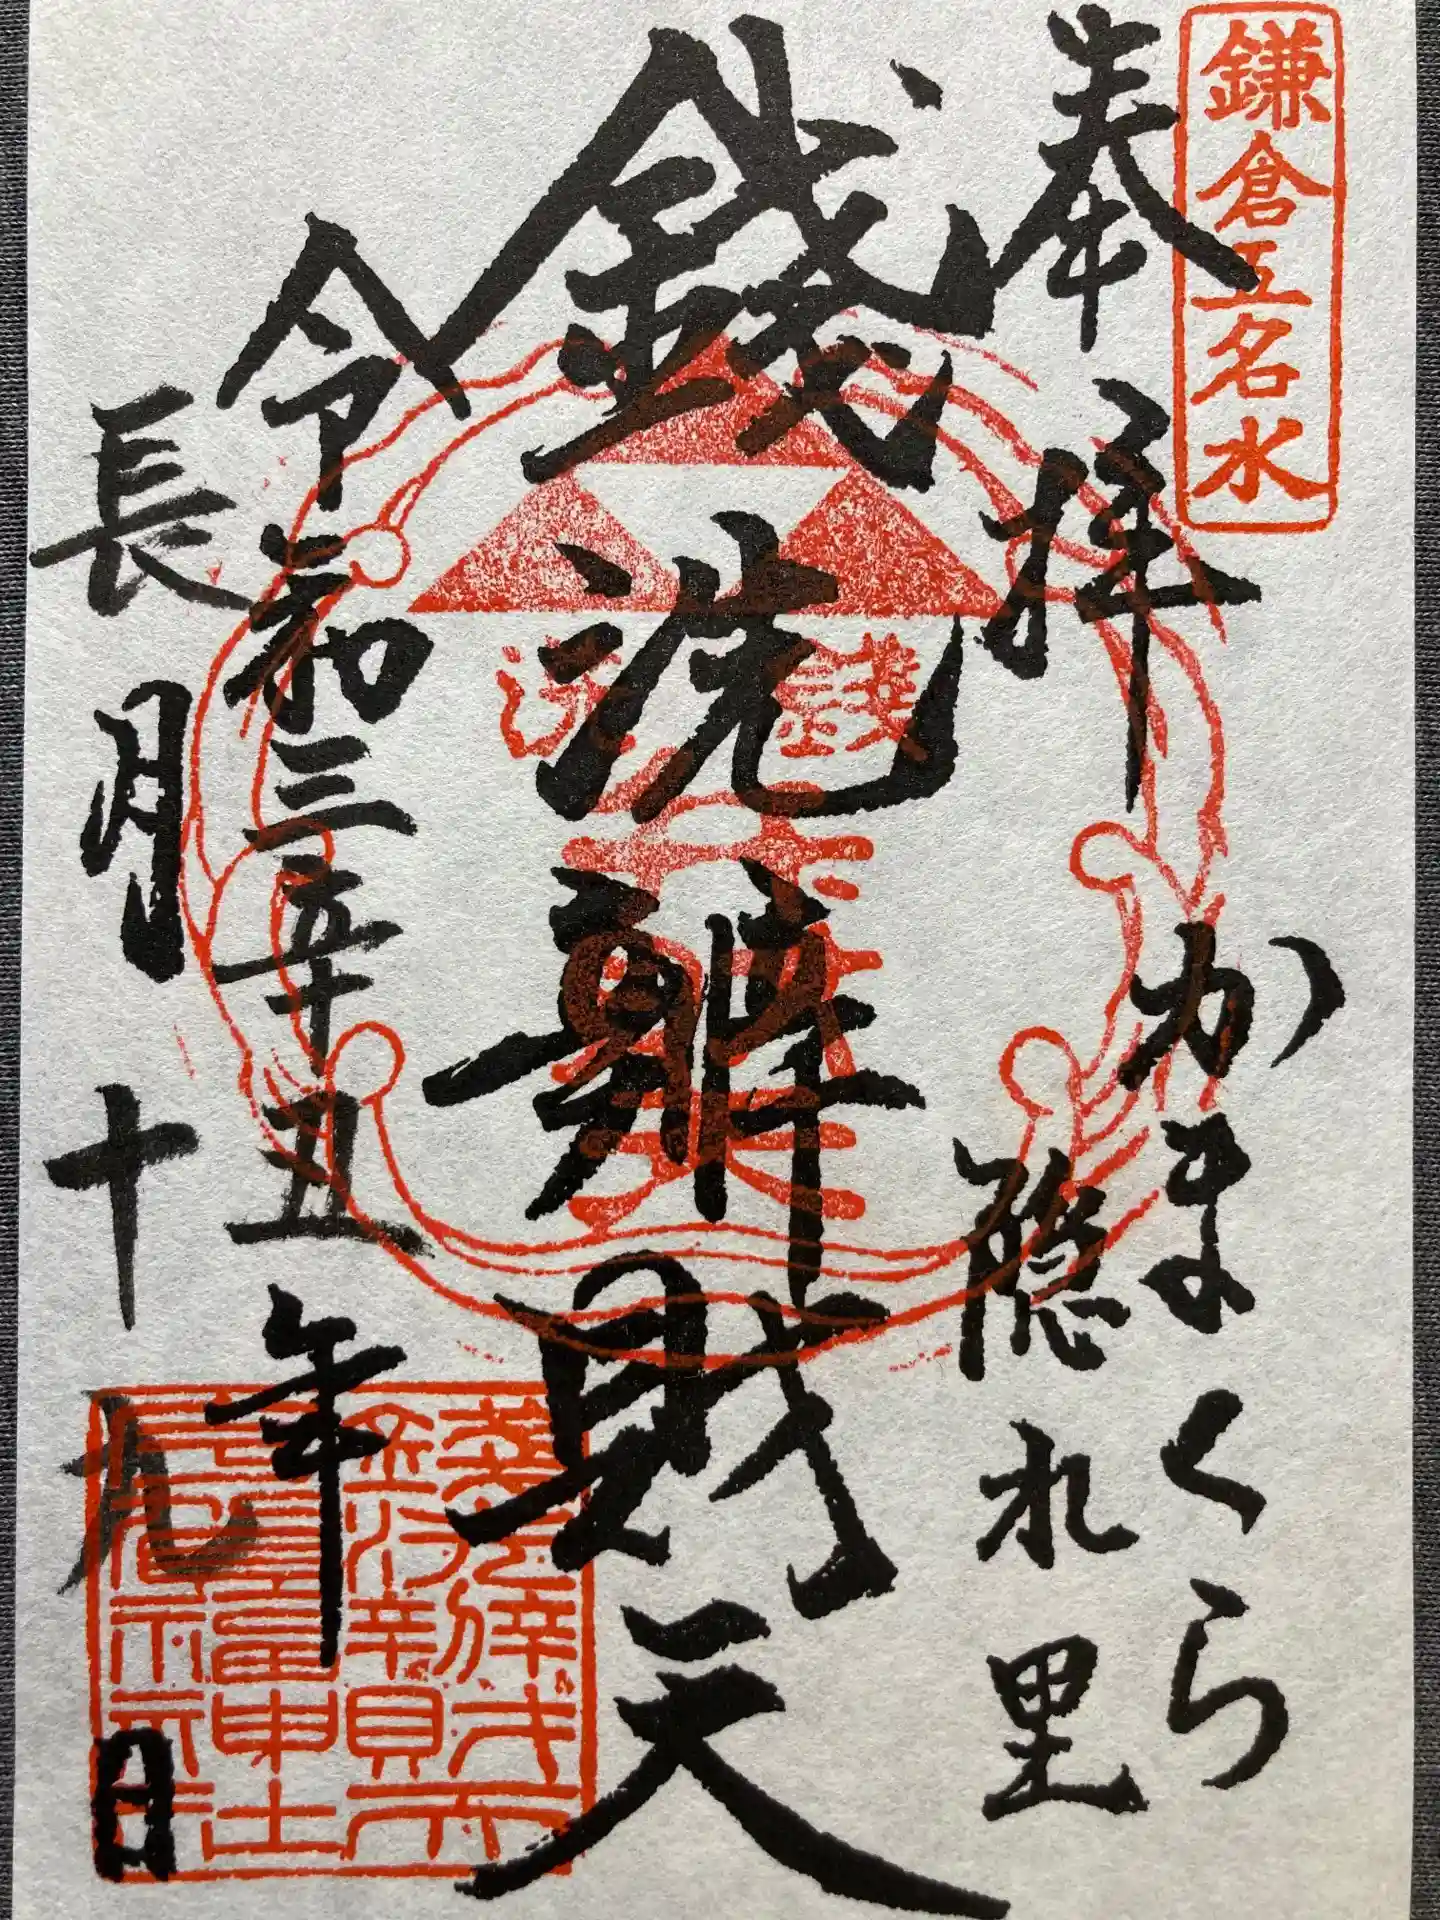 鎌倉五名水
奉拝
かまくら
隠れ里
銭洗辦財天
令和三辛丑年
長月十九日
銭
洗